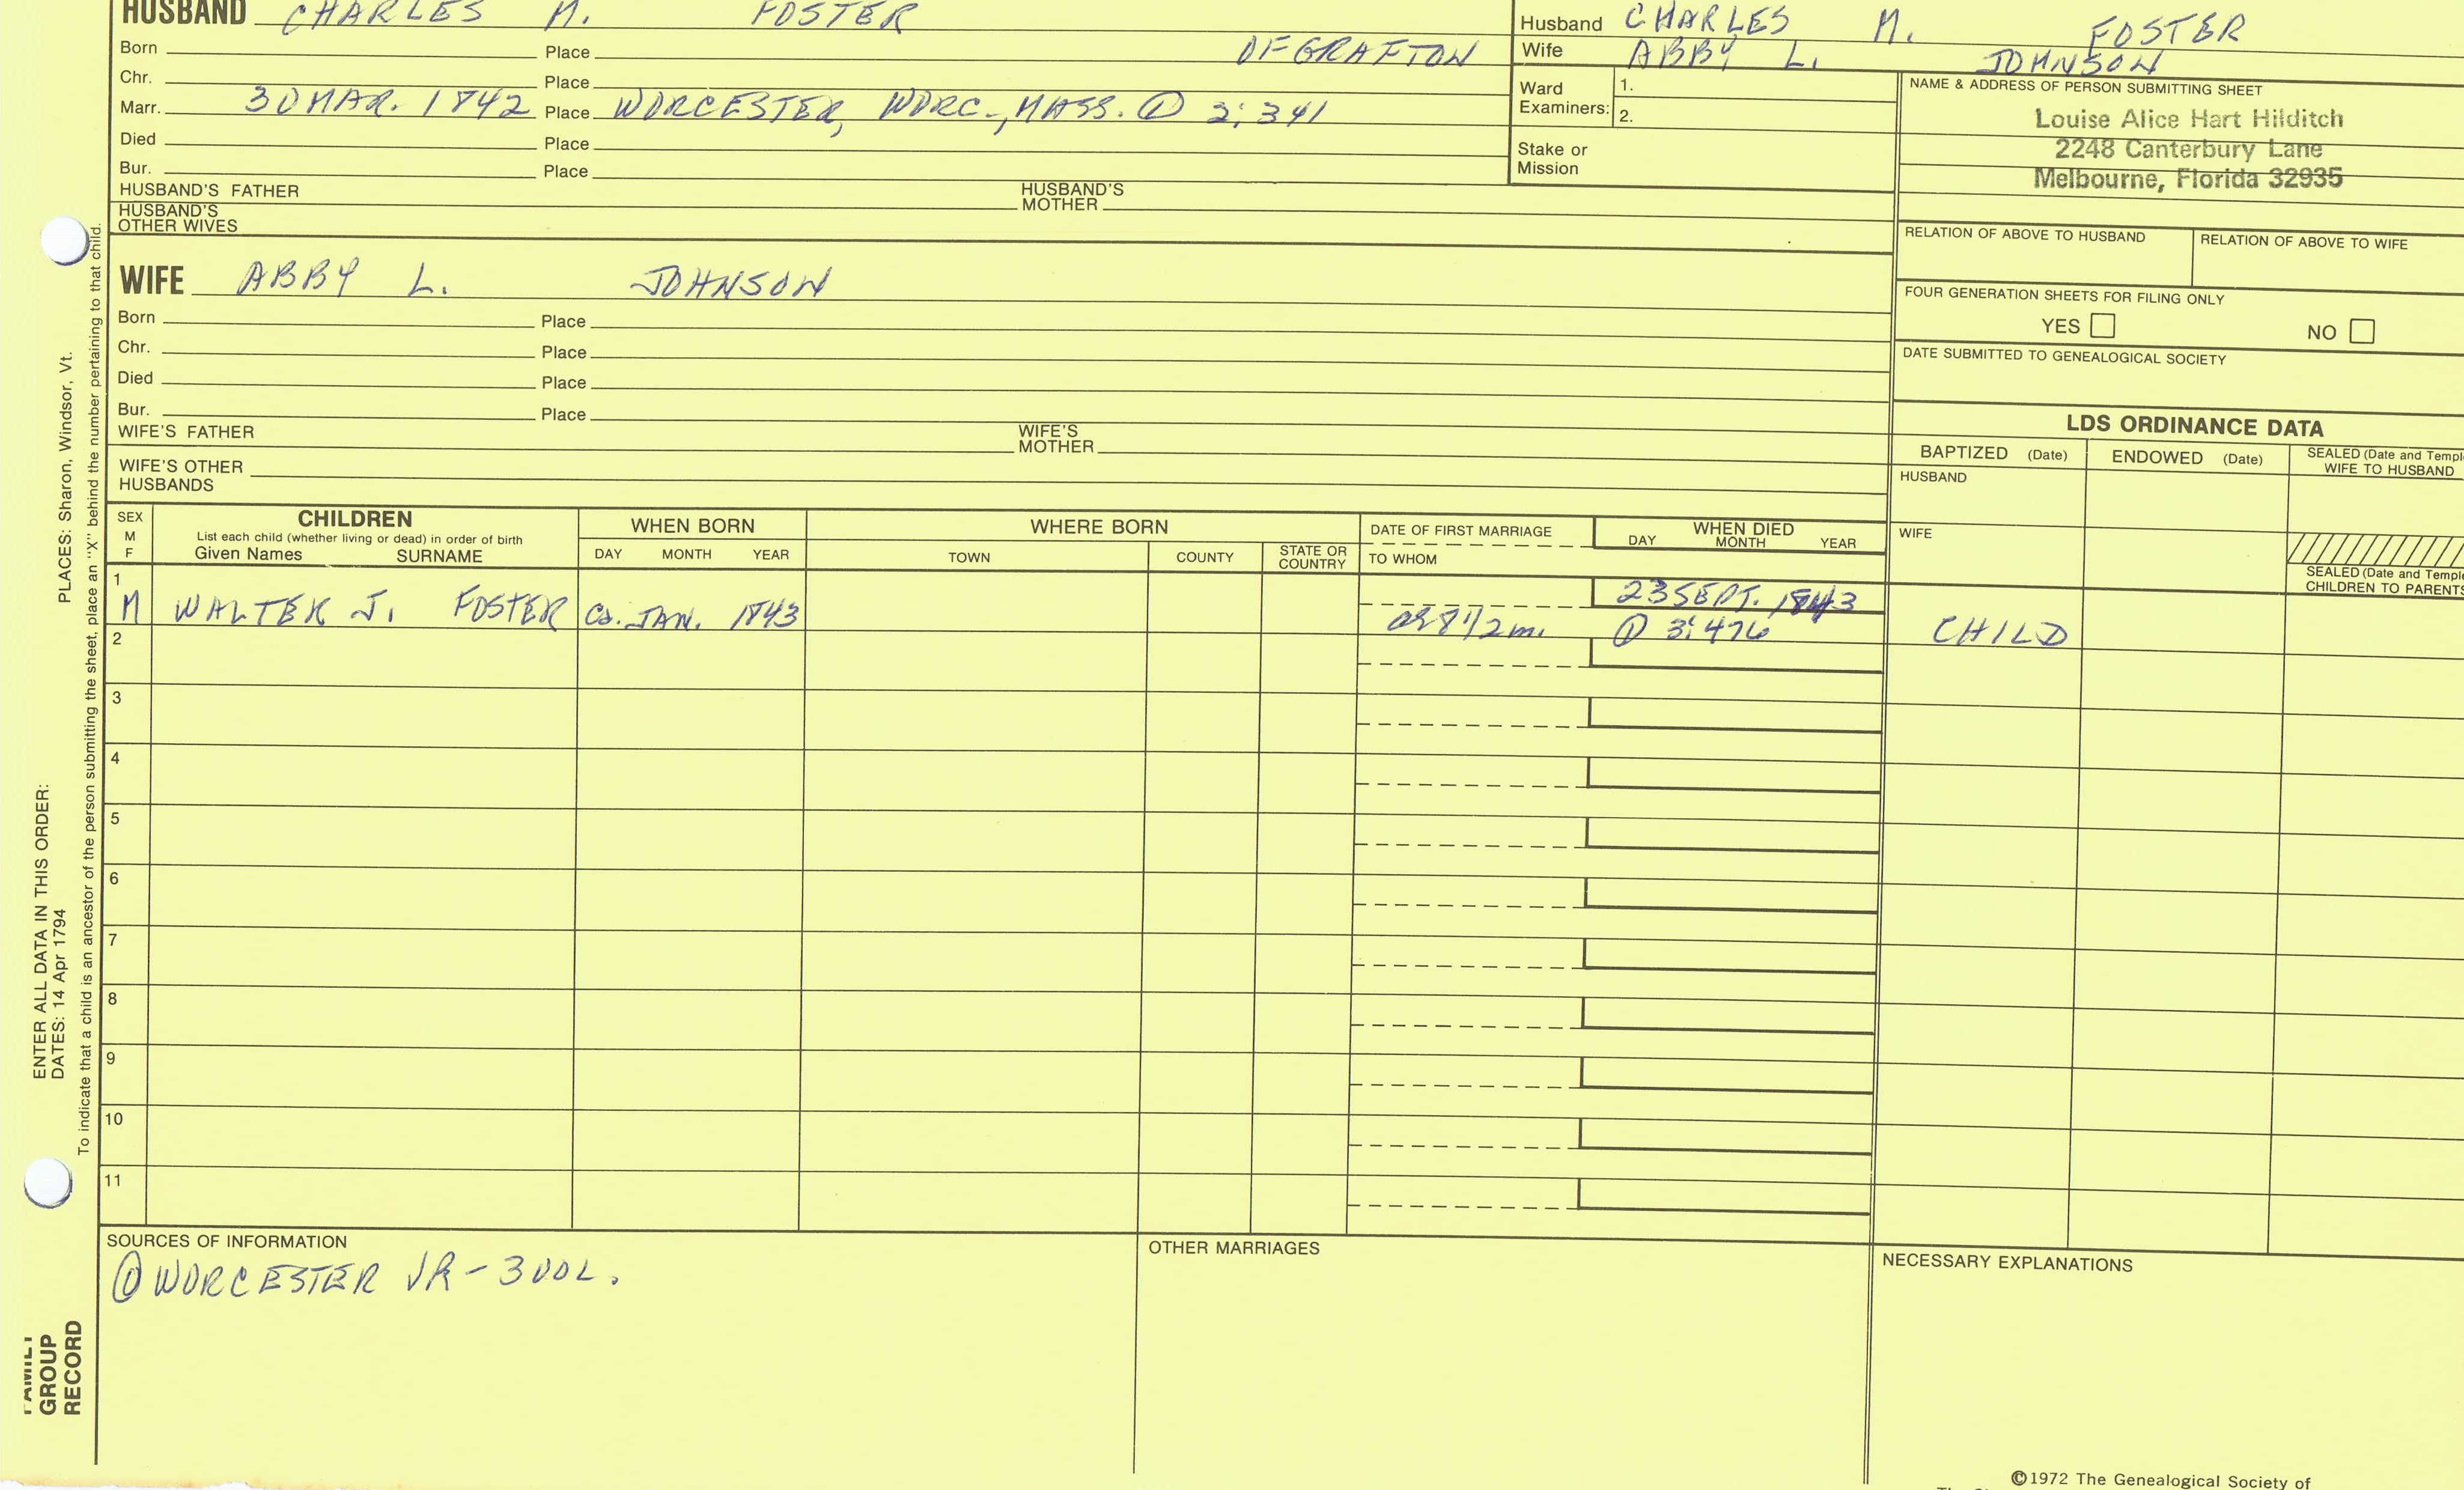 HUSBAND CHARLES M. FOSTER
Born Place OF GRAFTON
Chr. Place
Marr. 30 MAR. 1842 Place WORCESTER, WORC., MASS. ① 3:341
Died Place
Bur. Place
HUSBAND'S FATHER HUSBAND'S MOTHER
HUSBAND'S OTHER WIVES
Husband CHARLES M. FOSTER
Wife ABBY L. JOHNSON
Ward Examiners: 1.
2.
Stake or Mission
NAME & ADDRESS OF PERSON SUBMITTING SHEET
Louise Alice Hart Hilditch
2248 Canterbury Lane
Melbourne, Florida 32935
RELATION OF ABOVE TO HUSBAND RELATION OF ABOVE TO WIFE
FOUR GENERATION SHEETS FOR FILING ONLY
YES NO
DATE SUBMITTED TO GENEALOGICAL SOCIETY
WIFE ABBY L. JOHNSON
Born Place
Chr. Place
Died Place
Bur. Place
WIFE'S FATHER WIFE'S MOTHER
WIFE'S OTHER HUSBANDS
LDS ORDINANCE DATA
BAPTIZED (Date) ENDOWED (Date) SEALED (Date and Templ
WIFE TO HUSBAND
HUSBAND
WIFE
SEALED (Date and Temple
CHILDREN TO PARENTS
SEX M F
CHILDREN
List each child (whether living or dead) in order of birth
Given Names SURNAME
WHEN BORN
DAY MONTH YEAR
WHERE BORN
TOWN COUNTY STATE OR COUNTRY
DATE OF FIRST MARRIAGE
TO WHOM
WHEN DIED
DAY MONTH YEAR
1 23 SEPT. 1843
M WALTER J. FOSTER Ca. JAN. 1843 ae 8 1/2 m. ① 3:476 CHILD
2
3
4
5
6
7
8
9
10
11
SOURCES OF INFORMATION
① WORCESTER VR - 3 VOL.
OTHER MARRIAGES
NECESSARY EXPLANATIONS
©1972 The Genealogical Society of
PLACES: Sharon, Windsor, Vt.
ENTER ALL DATA IN THIS ORDER:
DATES: 14 Apr 1794
To indicate that a child is an ancestor of the person submitting the sheet, place an "X" behind the number pertaining to that child.
FAMILY
GROUP
RECORD